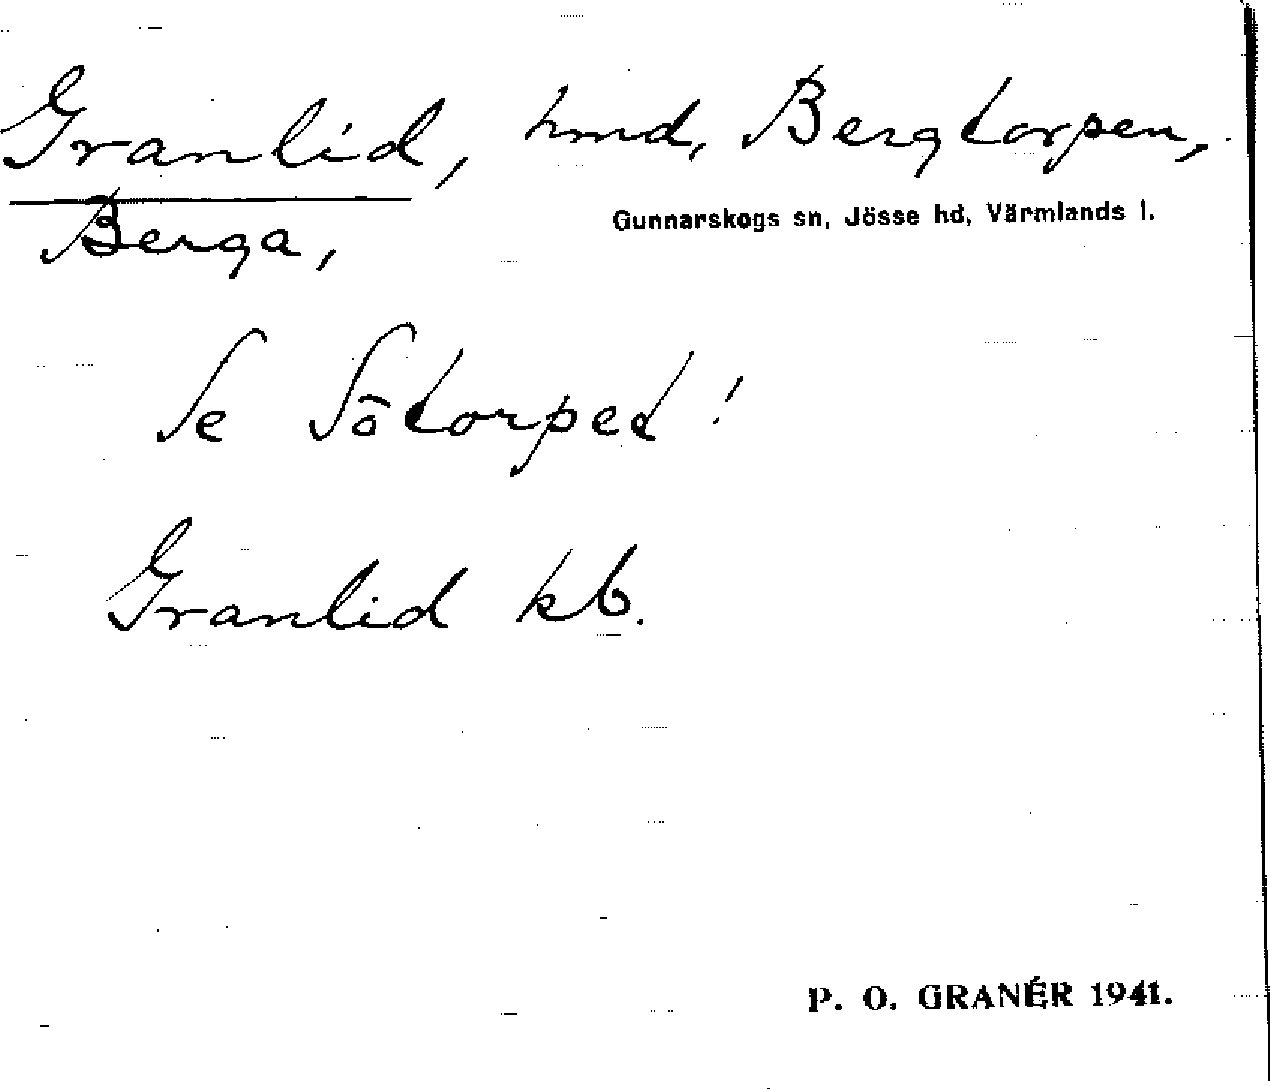 Granlid, hmd, Bergtorpen,
Gunnarskogs sn, Jösse hd, Värmlands l.
Berga,
Se Sötorpet!
Granlid kb.
P. O. GRANÉR 1941.